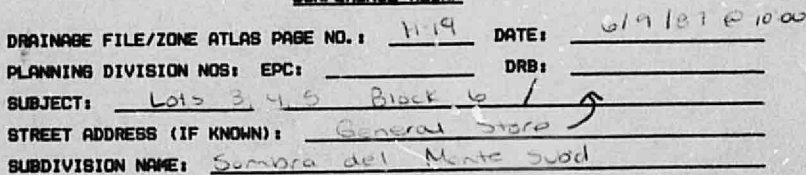 DRAINAGE FILE/ZONE ATLAS PAGE NO.: H-19 DATE: 6/9/87 @ 10:00
PLANNING DIVISION NOS: EPC: DRB:
SUBJECT: Lots 3, 4, 5 Block 6 /
STREET ADDRESS (IF KNOWN): General Store
SUBDIVISION NAME: Sombra del Monte Subd